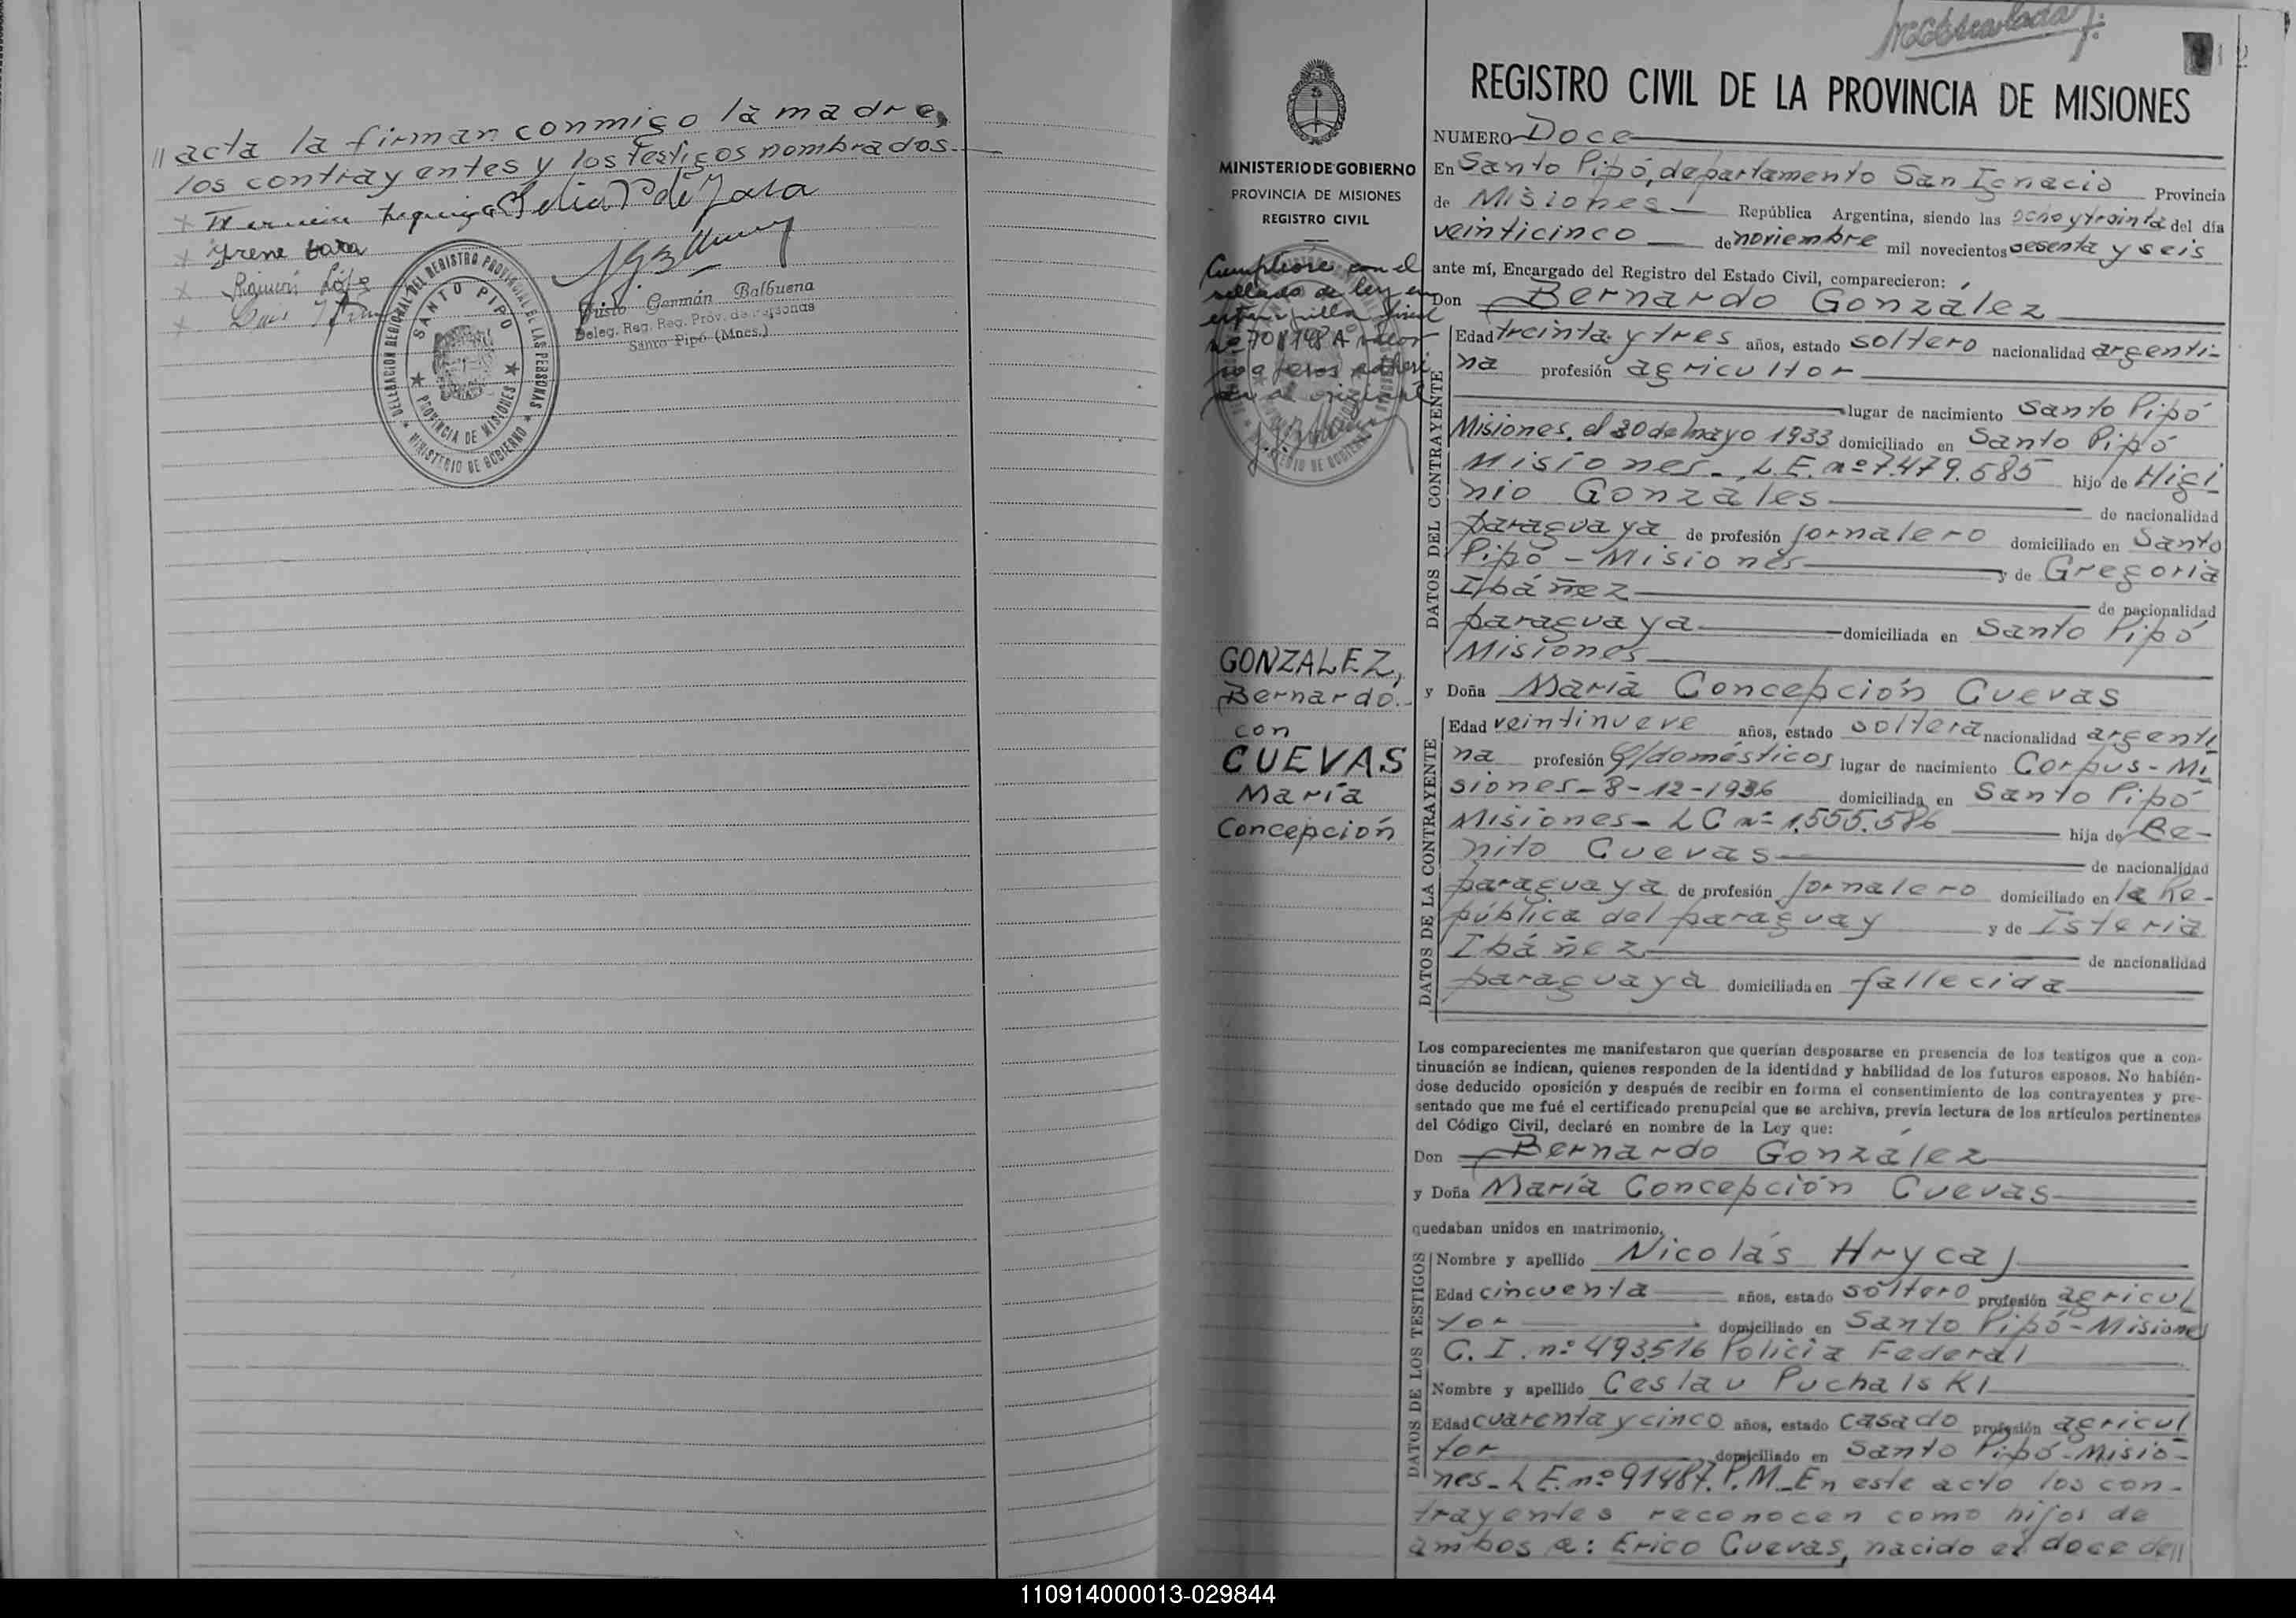 // acta la firman conmigo la madre,
los contrayentes y los testigos nombrados.
Irene
Ramón
Justo Germán Balbuena
Deleg. Reg. Reg. Prov. de Personas
Santo Pipó (Mnes.)
DELEGACION REGIONAL DEL REGISTRO PROVINCIAL DE LAS PERSONAS
SANTO PIPO
PROVINCIA DE MISIONES
MINISTERIO DE GOBIERNO
REGISTRO CIVIL DE LA PROVINCIA DE MISIONES
MINISTERIO DE GOBIERNO
PROVINCIA DE MISIONES
REGISTRO CIVIL
Cumplióse con el
sellado de ley en
estampilla fiscal
GONZALEZ,
Bernardo.
con
CUEVAS
María
Concepción
NUMERO Doce
En Santo Pipó, departamento San Ignacio Provincia
de Misiones República Argentina, siendo las ocho y treinta del día
veinticinco de noviembre mil novecientos sesenta y seis
ante mí, Encargado del Registro del Estado Civil, comparecieron:
Don Bernardo González
DATOS DEL CONTRAYENTE
Edad treinta y tres años, estado soltero nacionalidad argenti-
na profesión agricultor
lugar de nacimiento Santo Pipó
Misiones, el 30 de mayo 1933 domiciliado en Santo Pipó
Misiones - L.E. nº 7.479.685 hijo de Higi
nio Gonzáles de nacionalidad
paraguaya de profesión jornalero domiciliado en Santo
Pipó - Misiones y de Gregoria
Ibáñez de nacionalidad
paraguaya domiciliada en Santo Pipó
Misiones
y Doña María Concepción Cuevas
DATOS DE LA CONTRAYENTE
Edad veintinueve años, estado soltera nacionalidad argenti
na profesión Q/domésticos lugar de nacimiento Corpus - Mi
siones - 8-12-1936 domiciliada en Santo Pipó
Misiones - LC nº 1.555.586 hija de Be-
nito Cuevas de nacionalidad
paraguaya de profesión jornalero domiciliado en la Re-
pública del paraguay y de Isteria
Ibáñez de nacionalidad
paraguaya domiciliada en fallecida
Los comparecientes me manifestaron que querían desposarse en presencia de los testigos que a con-
tinuación se indican, quienes responden de la identidad y habilidad de los futuros esposos. No habién-
dose deducido oposición y después de recibir en forma el consentimiento de los contrayentes y pre-
sentado que me fué el certificado prenupcial que se archiva, previa lectura de los artículos pertinentes
del Código Civil, declaré en nombre de la Ley que:
Don Bernardo González
y Doña María Concepción Cuevas
quedaban unidos en matrimonio.
DATOS DE LOS TESTIGOS
Nombre y apellido Nicolás Hrycaj
Edad cincuenta años, estado soltero profesión agricul
tor domiciliado en Santo Pipó - Misiones
C. I. nº 493516 Policia Federal
Nombre y apellido Ceslav Puchalski
Edad cuarenta y cinco años, estado casado profesión agricul
tor domiciliado en Santo Pipó - Misio-
nes - L E. nº 91487. P.M. En este acto los con-
trayentes reconocen como hijos de
ambos a: Erico Cuevas, nacido el doce de//
110914000013-029844